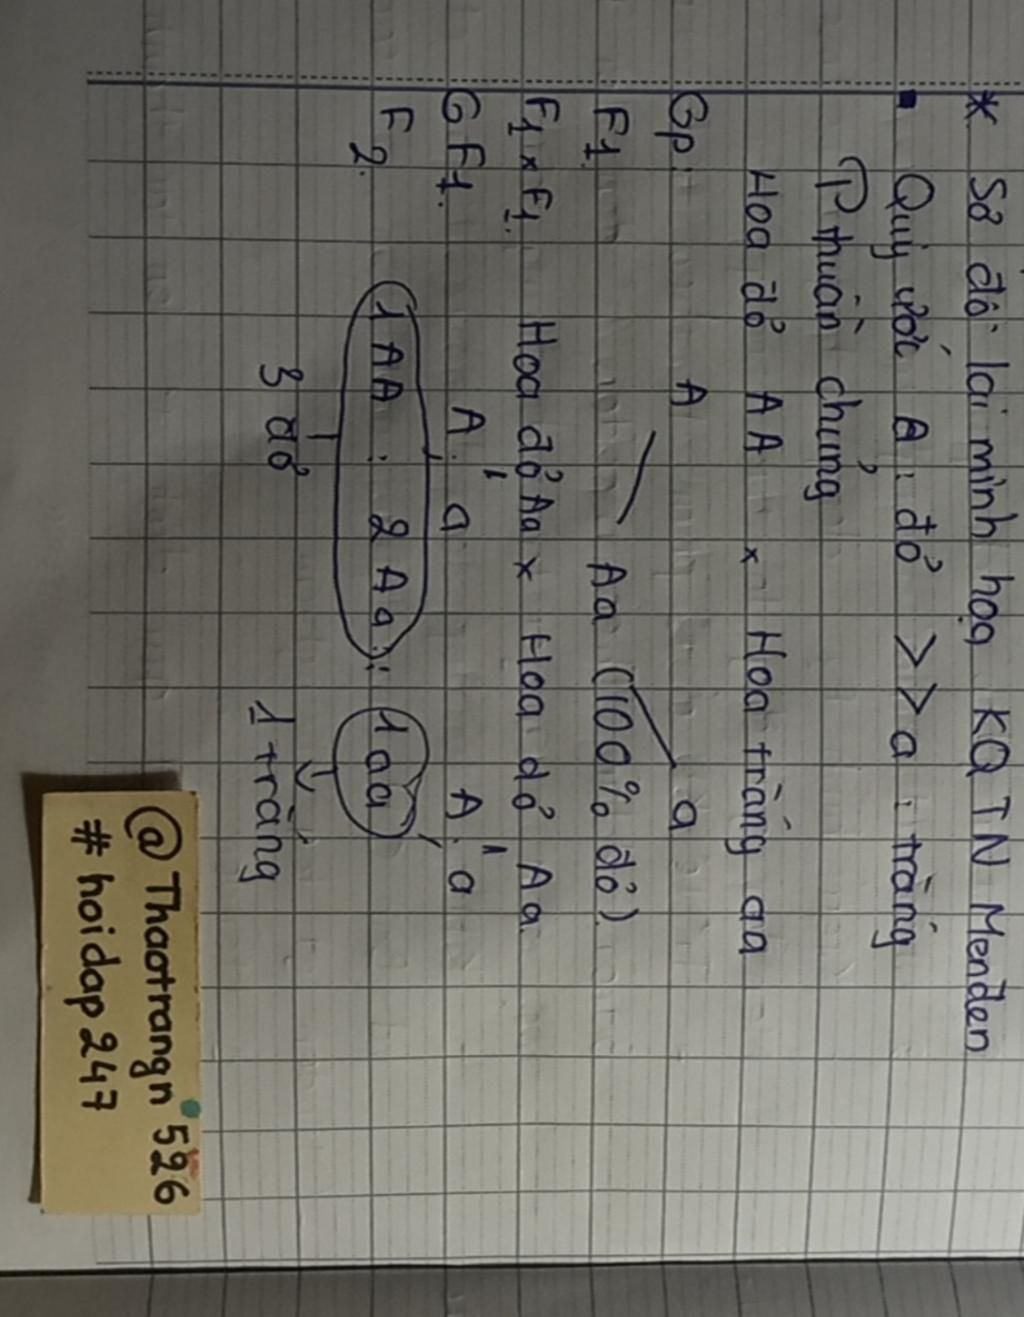 * Sơ đồ lai minh hoạ KQ TN Menđen
Quy ước A: đỏ >> a: trắng
P thuần chủng
Hoa đỏ AA x Hoa trắng aa
Gp: A a
F1 Aa (100% đỏ)
F1 x F1. Hoa đỏ Aa x Hoa đỏ Aa
GF1. A, a A, a
F2. 1 AA : 2 Aa : 1 aa
3 đỏ 1 trắng
@Thaotrangn 526
# hoidap247